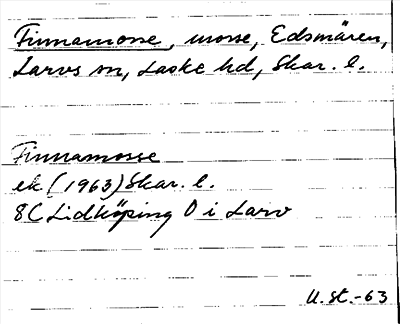 Finnamosse, mosse, Edsmären,
Larvs sn, Laske hd, Skar. l.
Finnamosse
ek (1963) Skar. l.
8C Lidköping O i Larv
U. St. -63